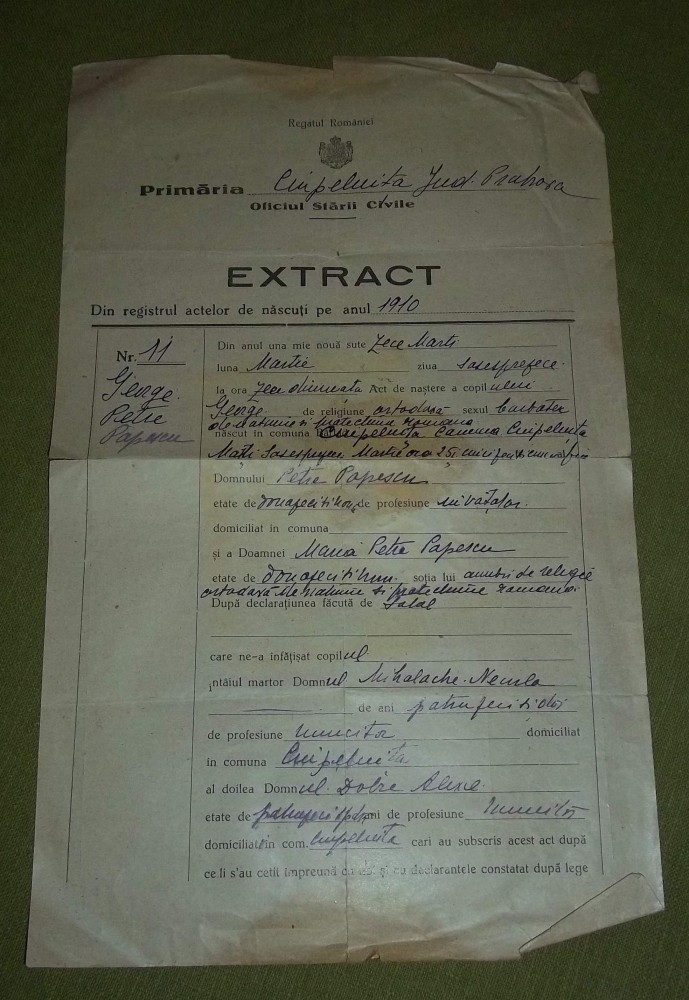 Regatul României
Primăria Jud. Prahova
Oficiul Stării Civile
EXTRACT
Din registrul actelor de născuți pe anul 1910
Nr. 11
George
Petre
Popescu
Din anul una mie nouă sute zece Marti
luna Martie ziua sasesprezece
la ora zece dimineata Act de naștere a copilului
George de religiune ortodoxă sexul barbatesc
de natiune si protectiune romana
născut în comuna
Marți Martie ora
Domnului Petre Popescu
etate de de profesiune
domiciliat in comuna
și a Doamnei Maria Petre Popescu
etate de soția lui de religie
ortodoxă de natiune si protectiune romana
După declarațiunea făcută de Tatal
care ne-a înfățișat copilul
întâiul martor Domnul Mihalache
de ani
de profesiune muncitor domiciliat
în comuna
al doilea Domnul Dobre
etate de ani de profesiune muncitor
domiciliat in com. cari au subscris acest act după
ce li s'au cetit împreună cu noi și cu declarantele constatat după lege